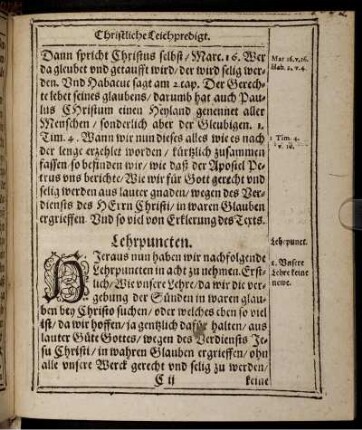 Christliche Leichpredigt.
Dann spricht Christus selbst/ Marc. 16. Wer
da gleubet vnd getaufft wird/ der wird selig wer-
den. Vnd Habacuc sagt am 2. cap. Der Gerech-
te lebet seines glaubens/ darumb hat auch Pau-
lus Christum einen Heyland genennet aller
Menschen/ sonderlich aber der Gleubigen. 1.
Tim. 4. Wann wir nun dieses alles wie es nach
der lenge erzehlet worden/ kürtzlich zusammen
fassen/ so befinden wir/ wie daß der Apostel Pe-
trus vns berichte/ Wie wir für Gott gerecht vnd
selig werden aus lauter gnaden/ wegen des Ver-
diensts des HErrn Christi/ in waren Glauben
ergrieffen. Vnd so viel von Erklerung des Texts.
Mar 16. v. 16.
Hab. 2. v. 4.
1 Tim. 4.
v. 10.
Lehrpuncten.
HIeraus nun haben wir nachfolgende
Lehrpuncten in acht zu nehmen. Erst-
lich/ Wie vnsere Lehre/ da wir die ver-
gebung der Sünden in waren glau-
ben bey Christo suchen/ oder welches eben so viel
ist/ da wir hoffen/ ja gentzlich dafür halten/ aus
lauter Güte Gottes/ wegen des Verdiensts Je-
su Christi/ in wahren Glauben ergrieffen/ ohn
alle vnsere Werck gerecht vnd selig zu werden/
Lehrpunct.
1. Vnsere
Lehre keine
newe.
C ij
keine